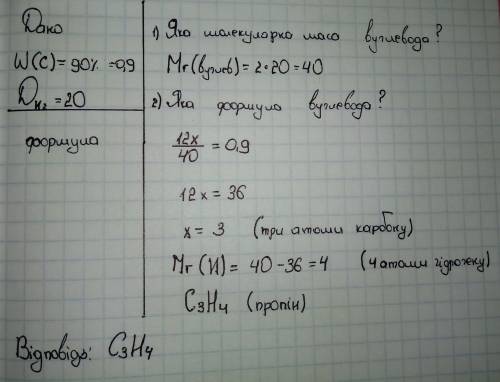 Дано
W(C)= 90% =0,9
D_H₂ =20
формула
1) Яка молекулярна маса вуглевода?
Mr(вуглев)=2•20=40
2) Яка формула вуглевода?
12x/40 = 0,9
12x = 36
x = 3 (три атоми карбону)
Mr(H)= 40-36=4 (4 атоми гідрогену)
C₃H₄ (пропін)
Відповідь: C₃H₄